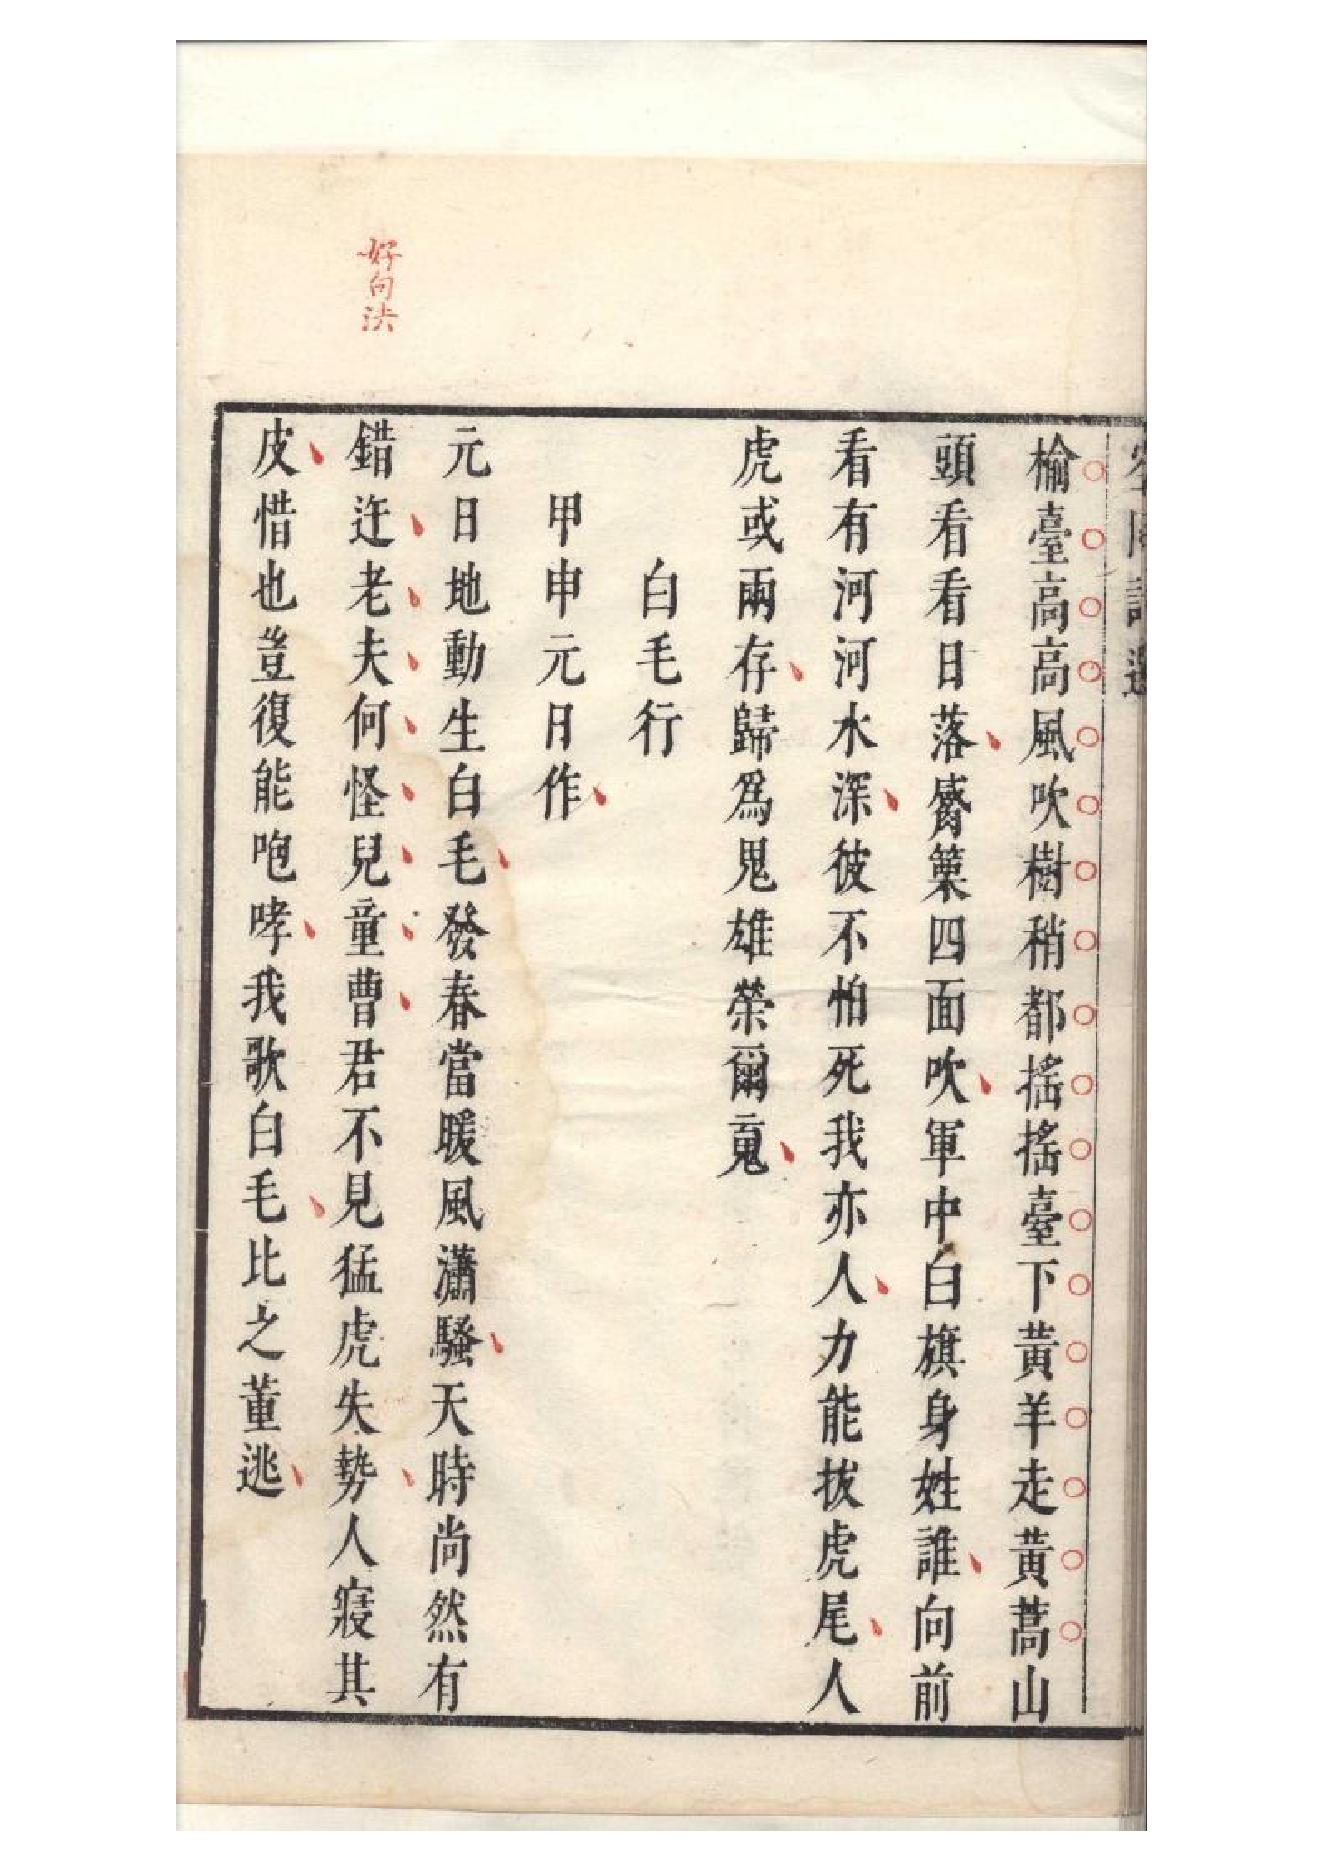 空同詩選
榆臺高高風吹樹稍都搖搖臺下黃羊走黃蒿山
頭看看日落觱篥四面吹軍中白旗身姓誰向前
看有河河水深彼不怕死我亦人力能拔虎尾人
虎或兩存歸爲鬼雄榮爾䰟
白毛行
甲申元日作
元日地動生白毛發春當暖風瀟騷天時尚然有
好句法
錯迕老夫何怪兒童曹君不見猛虎失勢人寢其
皮惜也豈復能咆哮我歌白毛比之董逃